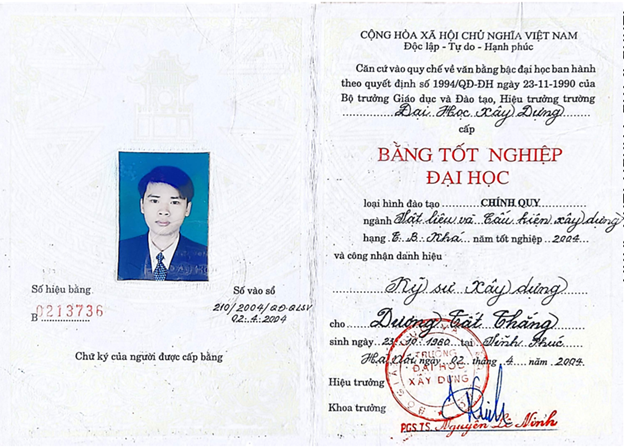 Số hiệu bằng
B 0213736
Số vào sổ
210/2004/QĐ-QLSV
02.4.2004
Chữ ký của người được cấp bằng
CỘNG HÒA XÃ HỘI CHỦ NGHĨA VIỆT NAM
Độc lập - Tự do - Hạnh phúc
Căn cứ vào quy chế về văn bằng bậc đại học ban hành
theo quyết định số 1994/QĐ-ĐH ngày 23-11-1990 của
Bộ trưởng Giáo dục và Đào tạo, Hiệu trưởng trường
Đại Học Xây Dựng
cấp
BẰNG TỐT NGHIỆP
ĐẠI HỌC
loại hình đào tạo CHÍNH QUY
ngành Vật liệu và Cấu kiện xây dựng
hạng T.B.Khá năm tốt nghiệp 2004
và công nhận danh hiệu
Kỹ sư Xây dựng
cho Dương Tất Thắng
sinh ngày 10.1980 tại Vĩnh Phúc
Hà Nội ngày 02 tháng 4 năm 2004
Hiệu trưởng
TRƯỜNG
ĐẠI HỌC
XÂY DỰNG
Khoa trưởng
PGS.TS. Nguyễn Lê Ninh